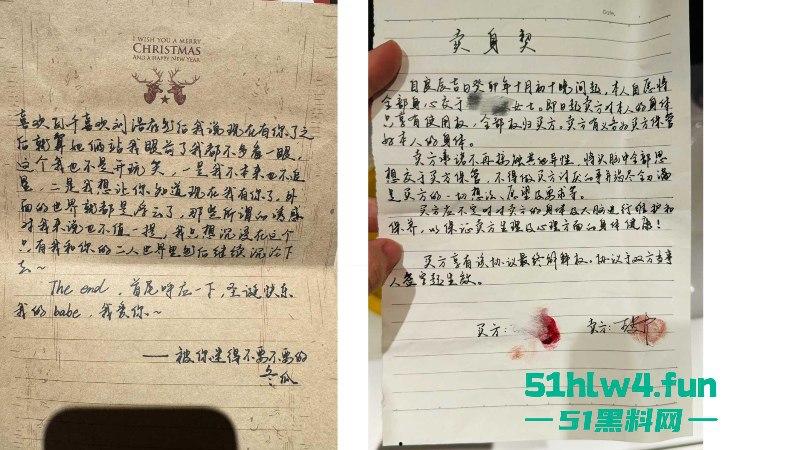 I WISH YOU A MERRY
CHRISTMAS
AND A HAPPY NEW YEAR
喜欢瓦千喜欢刘浩存到后我说现在有你了之
后就算她俩站我眼前了我都不多看一眼,
这个我也不是开玩笑,一是我本来也不追
星,二是我想让你知道现在我有你了,外
面的世界就都是浮云了,那些所谓的诱惑
对我来说也不值一提,我只想沉浸在这个
只有我和你的二人世界里到后继续沉沦下
去~
The end,首尾呼应一下,圣诞快乐
我的babe,我爱你~
——被你迷得不要不要的
冬瓜
Date.
卖身契
自良辰吉日癸卯年十月初十晚间起,本人自愿将
全部身心卖于 女士。即日起卖方对本人的身体
只享有使用权,全部权归买方。卖方有义务为买方保管
好本人的身体。
卖方承诺不再接触其他异性,将头脑中全部思
想交于买方保管,不得做买方讨厌的事并竭尽全力满
足买方的一切想法、愿望及要求等。
买方应不定时对卖方的身体及大脑进行维护和
保养,以保证卖方生理及心理方面的身体健康!
买方享有该协议最终解释权。协议于双方当事
人签字起生效。
买方: 卖方:
51hlw4.fun
—51黑料网—